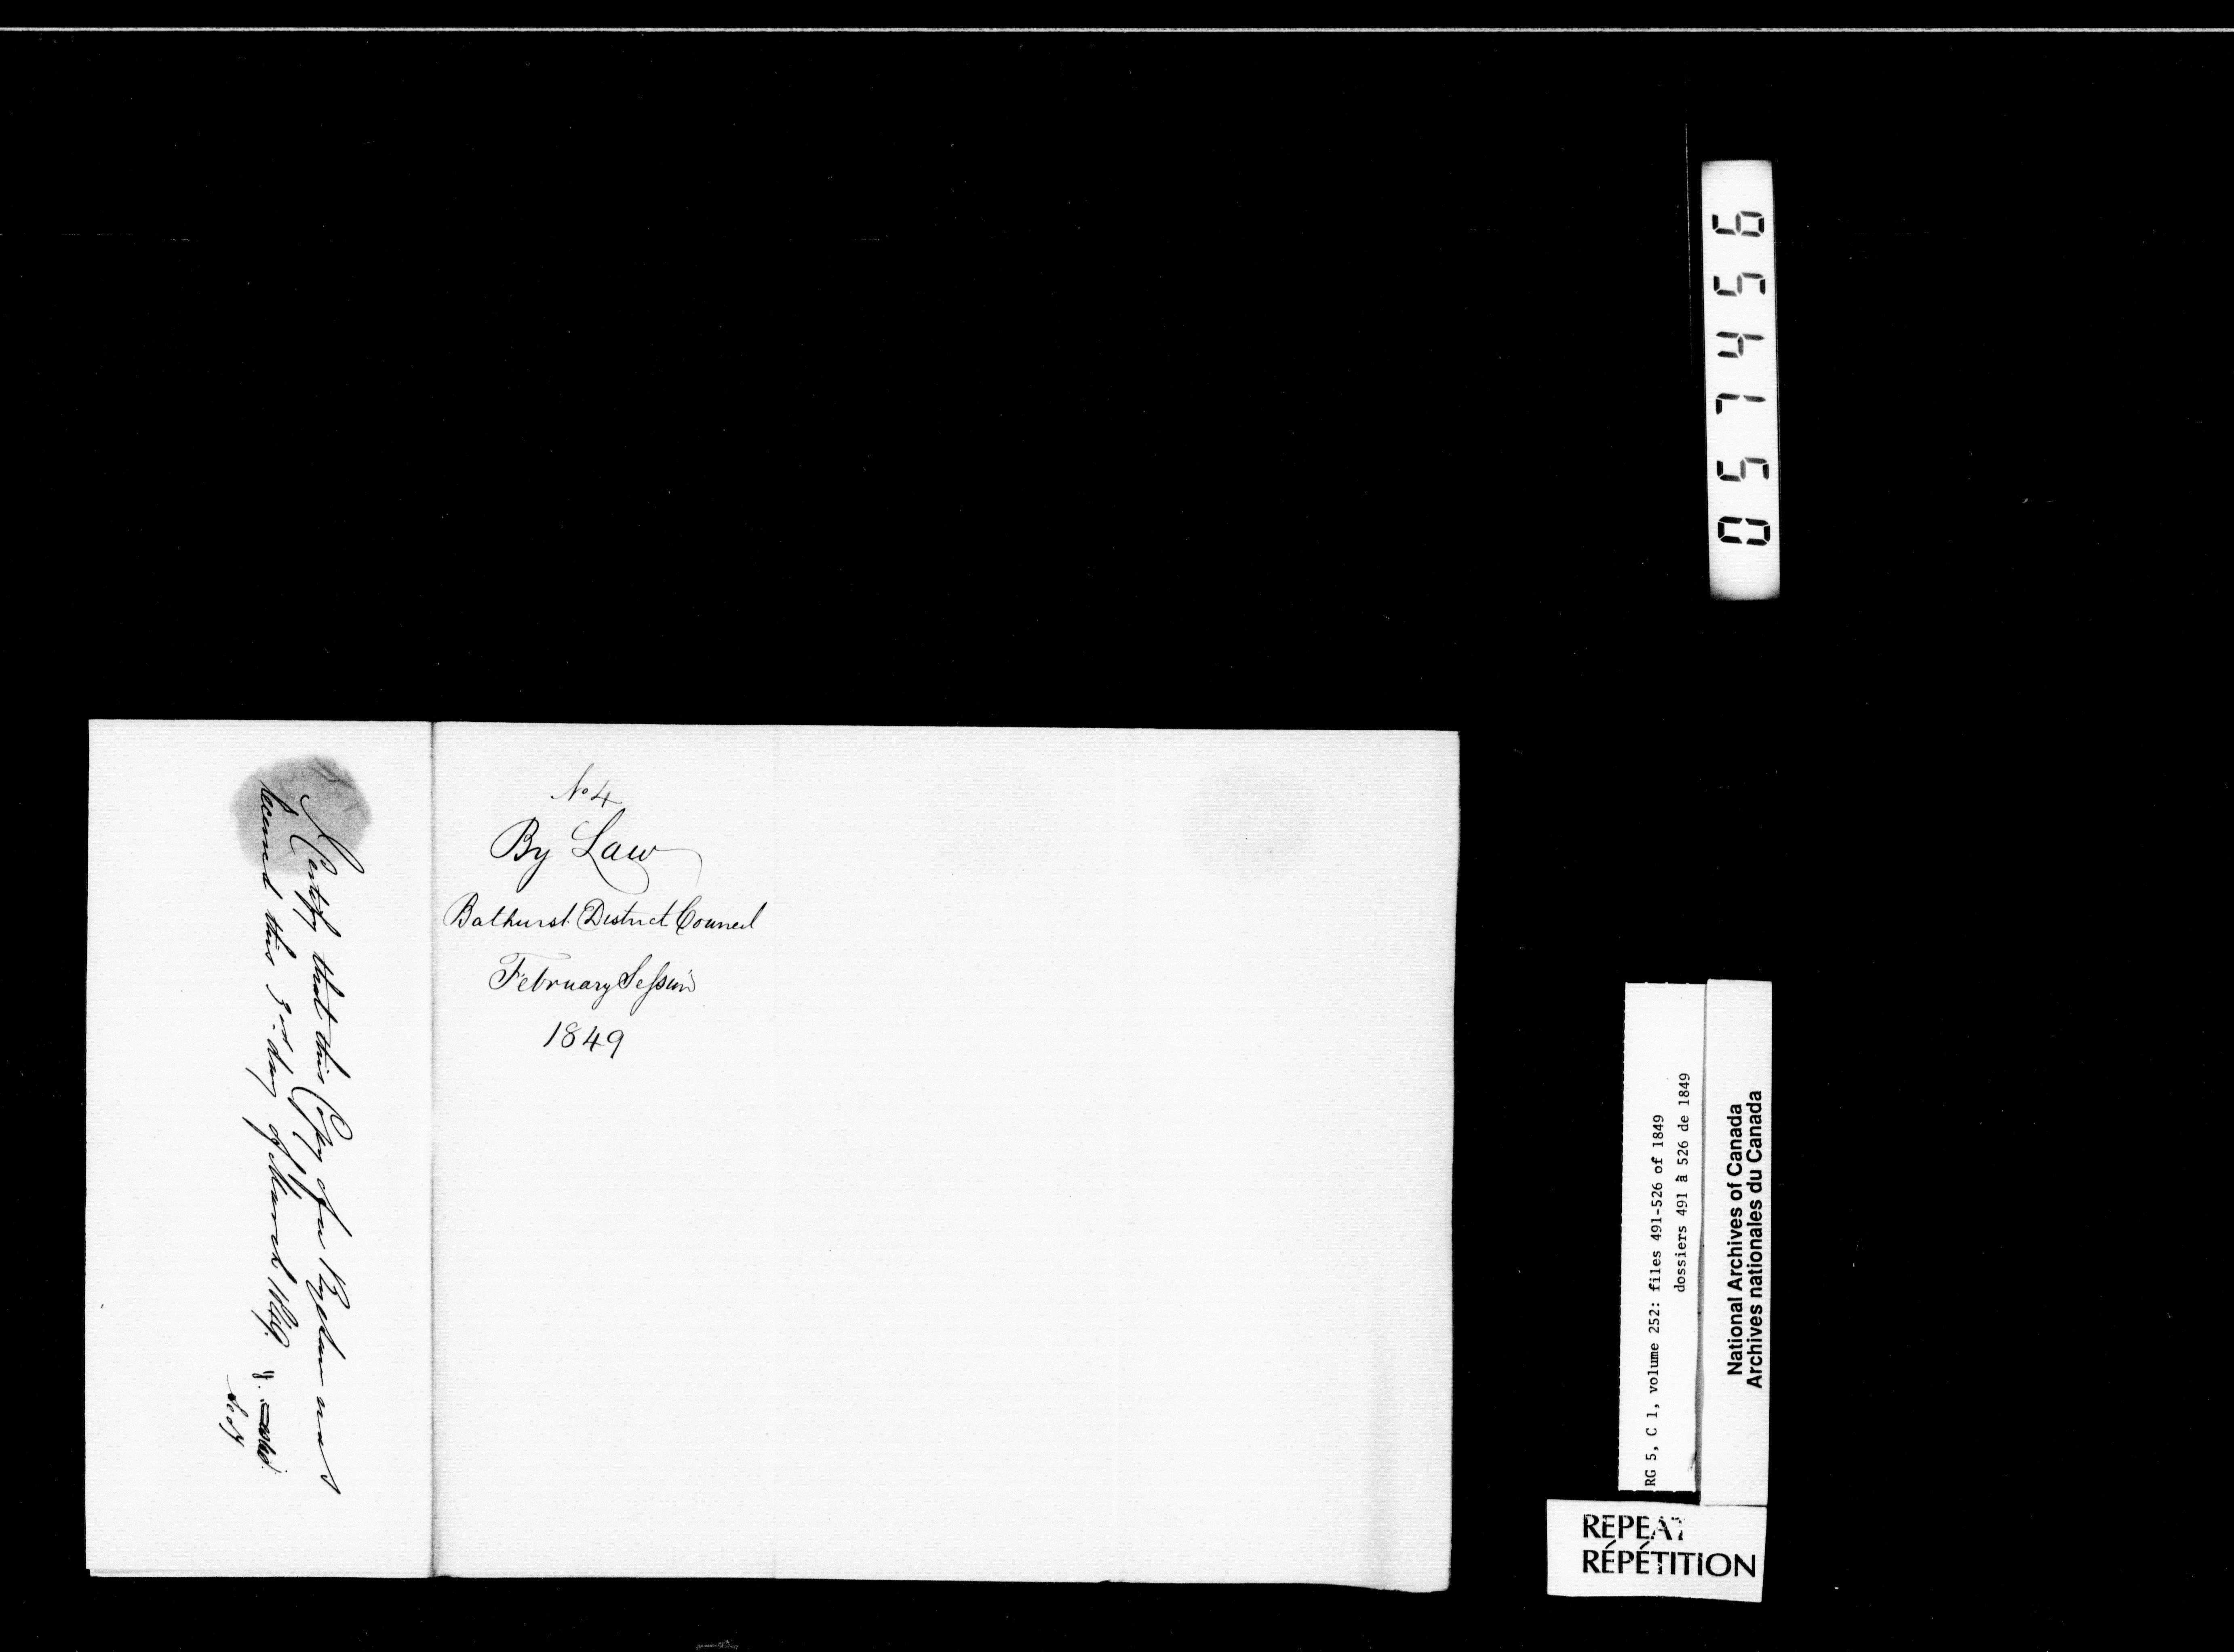 No 4
By Law
Bathurst District Council
February Session
1849
I Certify that this Copy of a By law was
received this 3rd day of March 1849.
057456
RG 5, C 1, volume 252: files 491-526 of 1849
dossiers 491 à 526 de 1849
National Archives of Canada
Archives nationales du Canada
REPEAT
RÉPÉTITION